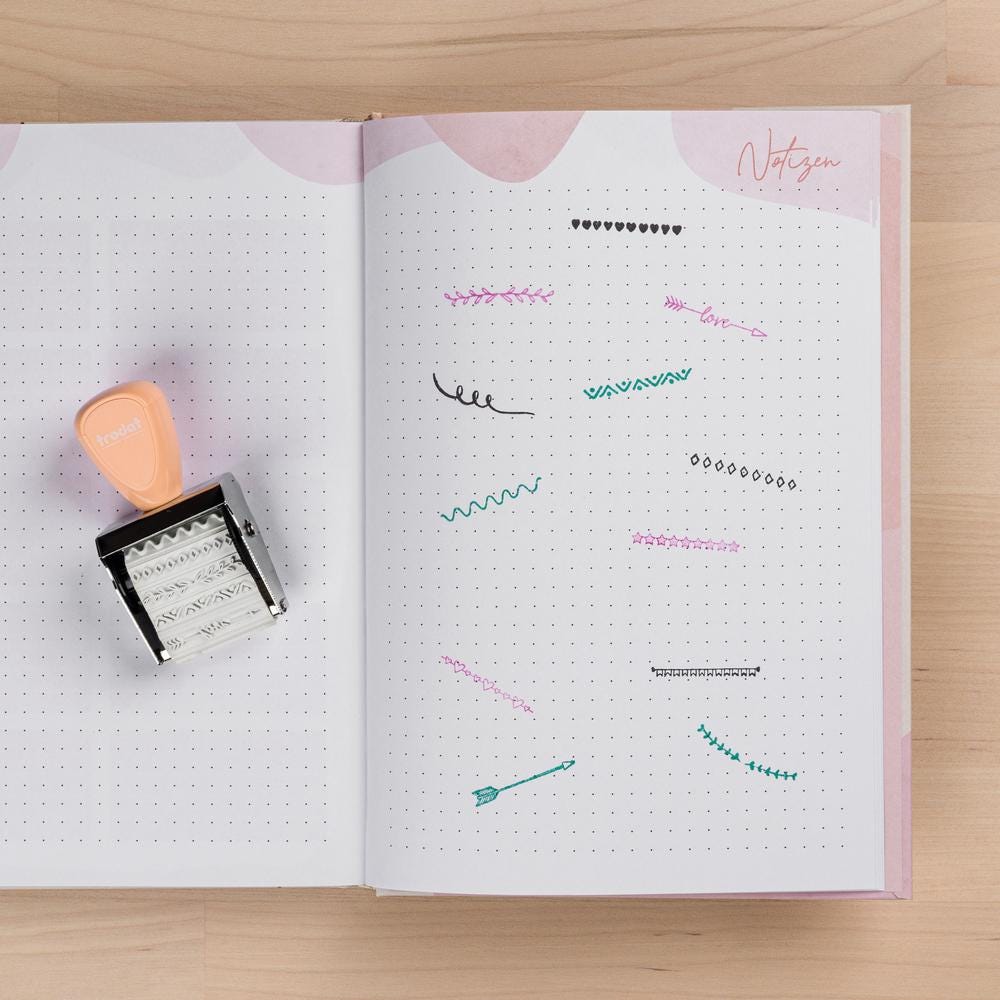 Notizen
love
trodat